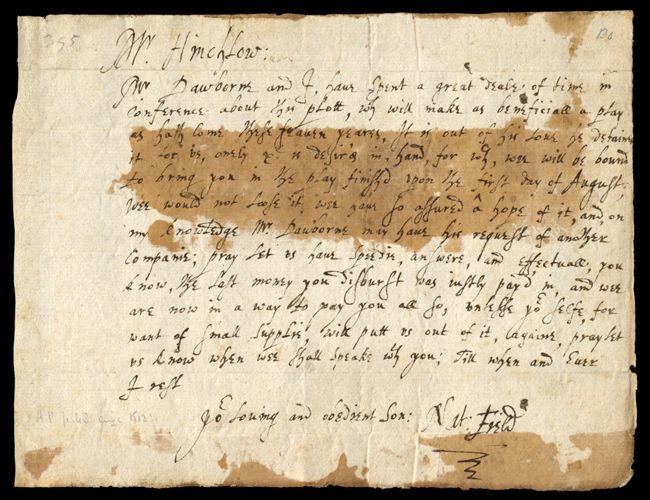 395
130
Mr. Hinchlow:
Mr Dawborne and I, have spent a great deale of time in
conference about this plott, wch will make as beneficiall a play
as hath come these seaven yeares, It is out of his loue he detaines
it for vs, onely xl is desir'd in hand, for wch, wee will be bound
to bring you in the play finish'd vpon the first day of August;
wee would not loose it, wee haue so assured a hope of it, and on
my knowledge Mr. Dawborne may haue his request of another
Companie; pray let vs haue speedie answere, and effectuall, you
know, the last money you disburst was iustly pay'd in, and wee
are now in a way to pay you all so, vnlesse yor selfe, for
want of small supplie, will putt vs out of it, againe, pray let
vs know when wee shall speake wth you; Till when and Euer
I rest
yor louing and obedient Son: Nat: Field